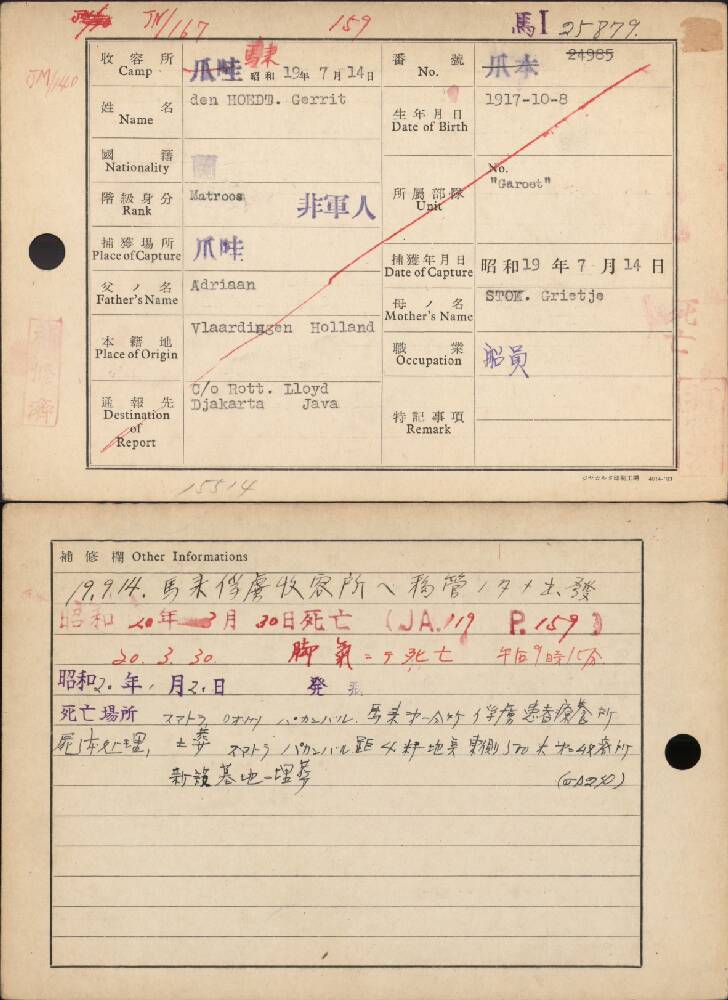 JN/167 159 馬I 25879.
JM/140
收容所 Camp 爪哇 馬来 昭和19年7月14日
番號 No. 爪本 24985
姓名 Name den HOEDT. Gerrit
生年月日 Date of Birth 1917-10-8
國籍 Nationality
階級身分 Rank Matroos 非軍人
所屬部隊 Unit No. "Garoet"
捕獲場所 Place of Capture 爪哇
捕獲年月日 Date of Capture 昭和19年7月14日
父ノ名 Father's Name Adriaan
母ノ名 Mother's Name STOK. Grietje
本籍地 Place of Origin Vlaardingen Holland
職業 Occupation 船員
通報先 Destination of Report C/o Rott. Lloyd
Djakarta Java
特記事項 Remark
15514
補修欄 Other Informations
19.9.14. 馬来俘虜收容所ヘ移管ノタメ出発
昭和20年3月30日死亡 (JA.119 P.159)
20.3.30 脚氣ニテ死亡 午后9時15分
昭和 年 月 日 発
死亡場所 スマトラ パカンバル 馬来 俘虜患者療養所
死体処理 土葬 スマトラ パカンバル 東側
新設墓地 埋葬